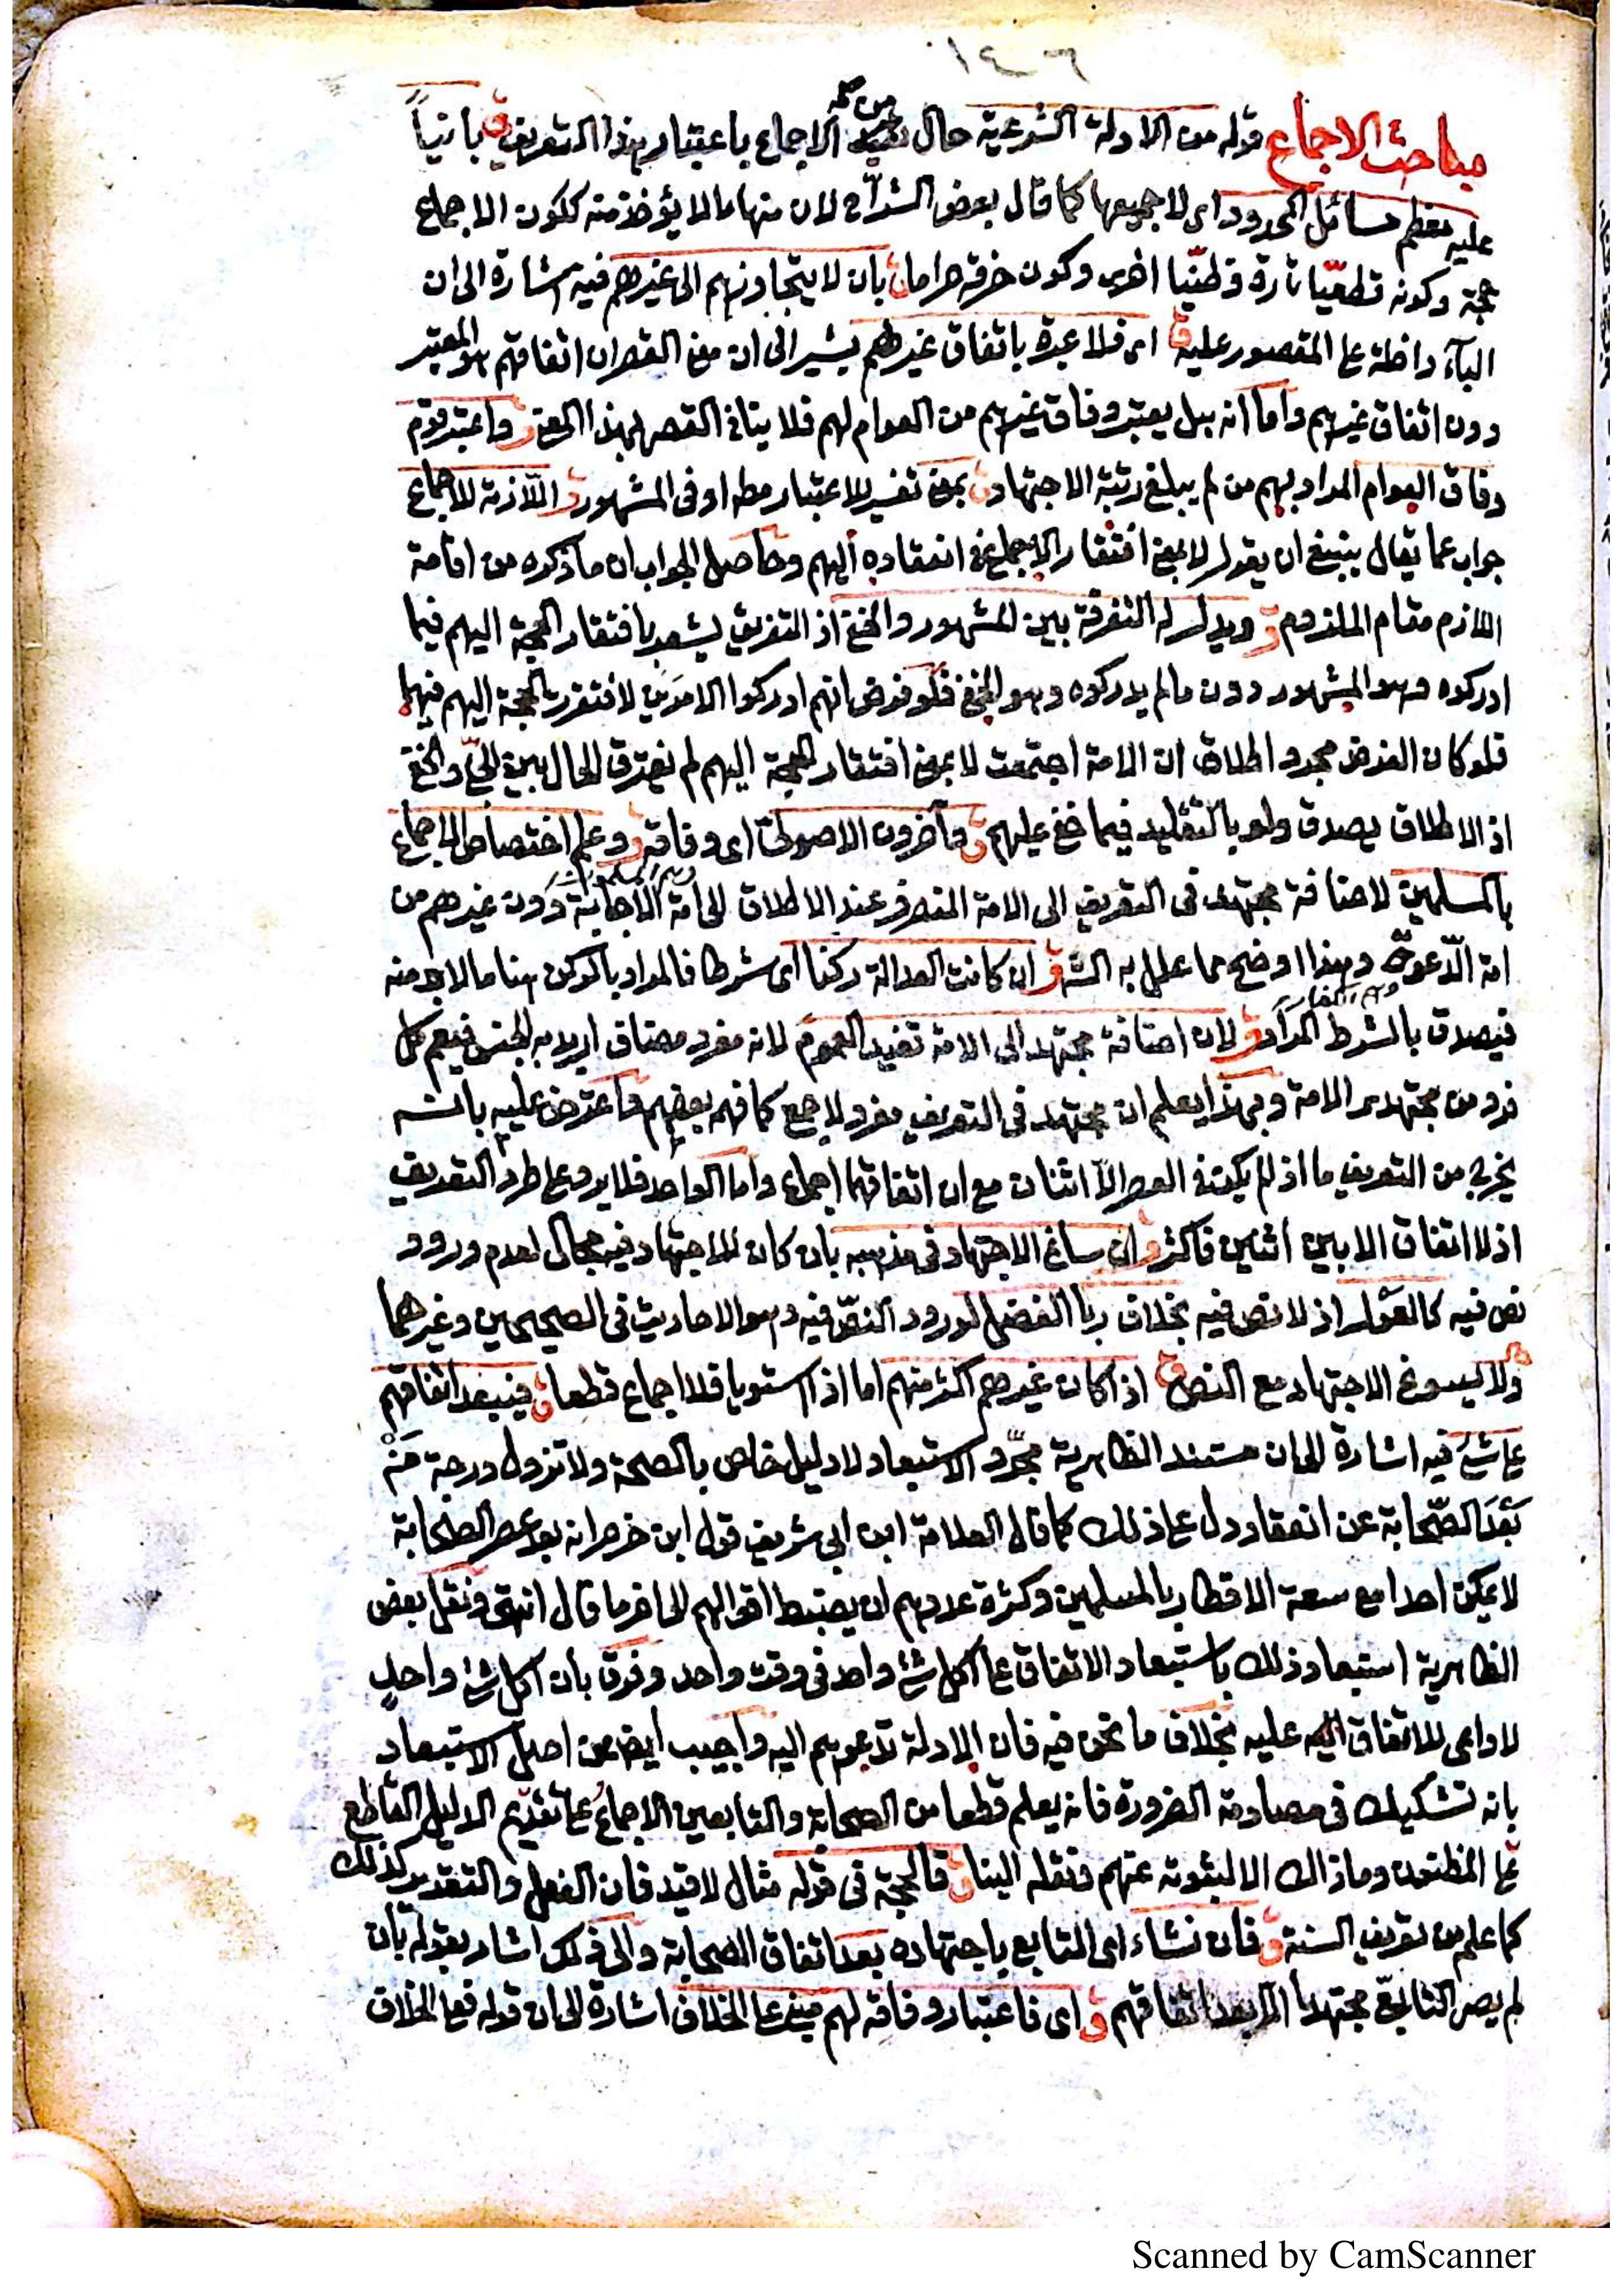 ١٤٠٦
مباحث الاجماع قوله من الادلة الشرعية حال من كلمة الاجماع باعتبار هذا التعريف ق بانياً
عليه معظم مسائل المحدود اى لا جميعها كما قال بعض الشراح لان منها ما لا يؤخذ منه ككون الاجماع
حجة وكونه قطعيّا تارة وظنّيا اخرى وكون خرقه حراما ق بان لا يتجاوزهم الى غيرهم فيه اشارة الى ان
الباء داخلة على المقصور عليه ق اى فلا عبرة باتفاق غيرهم يشير الى ان معنى القصر ان اتفاقهم هو المعتبر
دون اتفاق غيرهم واما انه بل يعتبر وفاق غيرهم من العوام لهم فلا ينافى القصر بهذا المعنى ق واعتبر قوم
وفاق العوام المراد بهم من لم يبلغ رتبة الاجتهاد ق بمعنى تفسير للاعتبار مطه او فى المشهور ق اللازمة للاجماع
جواب عما يقال ينبغى ان يقول لا بمعنى افتقار الاجماع فى انعقاده اليهم وحاصل الجواب ان ما ذكره من اقامة
اللازم مقام الملزوم ق ويدل له التفرقة بين المشهور والخفى اذ التفريق يشعر بافتقار الحجة اليهم فيما
ادركوه وهو المشهور دون ما لم يدركوه وهو الخفى فلو فرض انهم ادركوا الامرين لافتقرت الحجة اليهم فيهما
فلو كان الغرض مجرد اطلاق ان الامة اجتمعت لا بمعنى افتقار الحجة اليهم لم يفترق الحال بين الجلىّ والخفى
اذ الاطلاق يصدق ولو بالتقليد فيما خفى عليهم ق وآخرون الاصولىّ اى وفاقه ق وعلم اختصاص الاجماع
بالمسلمين لاضافة مجتهد فى التعريف الى الامة المنصرف عند الاطلاق الى امة الاجابة وهم المسلمون دون غيرهم من
امة الدّعوة وهم الكفار وهذا اوضح مما علل به الشه ق ان كانت العدالة ركنا اى شرطا فالمراد بالركن هنا ما لا بد منه
فيصدق بالشرط المراد ق لان اضافة مجتهد الى الامة تفيد العموم لانه مفرد مضاف اريد به الجنس فيعم كل
فرد من مجتهدى الامة وبهذا يعلم ان مجتهد فى التعريف مفرد لا جمع كما فهم بعضهم واعترض عليه بانه
يخرج من التعريف ما اذ لم يكن فى العصر الّا اثنان مع ان اتفاقهما اجماع واما الواحد فلا يرد على طرد التعريف
اذ لا اتفاق الا بين اثنين فاكثر ق ان ساغ الاجتهاد فى مذهبه بان كان للاجتهاد فيه مجال لعدم ورود
نص فيه كالعَوْل اذ لا نص فيه بخلاف ربا الفضل لورود النصّ فيه وهو الاحاديث فى الصحيحين وغيرهما
ولا يسوغ الاجتهاد مع النص ق اذا كان غيرهم اكثر منهم اما اذا استويا فلا اجماع قطعا ق فيبعد اتفاقهم
على شئ فيه اشارة الى ان مستند الظاهرية مجرّد الاستبعاد لا دليل خاص بالصحة ولا تنزول درجة مَنْ
بَعْدَ الصّحابة عن انعقاد دل على ذلك كما قال العلامة ابن ابى شريف قول ابن خرم انه بعد عصر الصحابة
لا يمكن احدا مع سعة الاقطار بالمسلمين وكثرة عددهم ان يضبط اقوالهم الى اخر ما قال انتهى ونقل بعض
الظاهرية استبعاد ذلك باستبعاد الاتفاق على اكل شئ واحد فى وقت واحد وفرق بان اكل شئ واحد
لا داعى للاتفاق عليه بخلاف ما نحن فيه فان الادلة تدعوهم اليه واجيب ايضا عن اصل الاستبعاد
بانه تشكيك فى مصادمة الضرورة فانه يعلم قطعا من الصحابة والتابعين الاجماعُ على تقديم الدليل القاطع
على المظنون وما ذاك الا لثبوته عنهم ونقله الينا ق فالحجة فى قوله مثال لا قيد فان الفعل والتقدير كذلك
كما علم من تعريف السنة ق فان نشاء اى التابع باجتهاده بعد اتفاق الصحابة والى ذلك اشار بقوله بان
لم يصر التابعىّ مجتهدا الا بعد اتفاقهم ق اى فاعتبار وفاقه لهم مبنى على الخلاف اشارة الى ان قوله فعلى الخلاف
Scanned by CamScanner